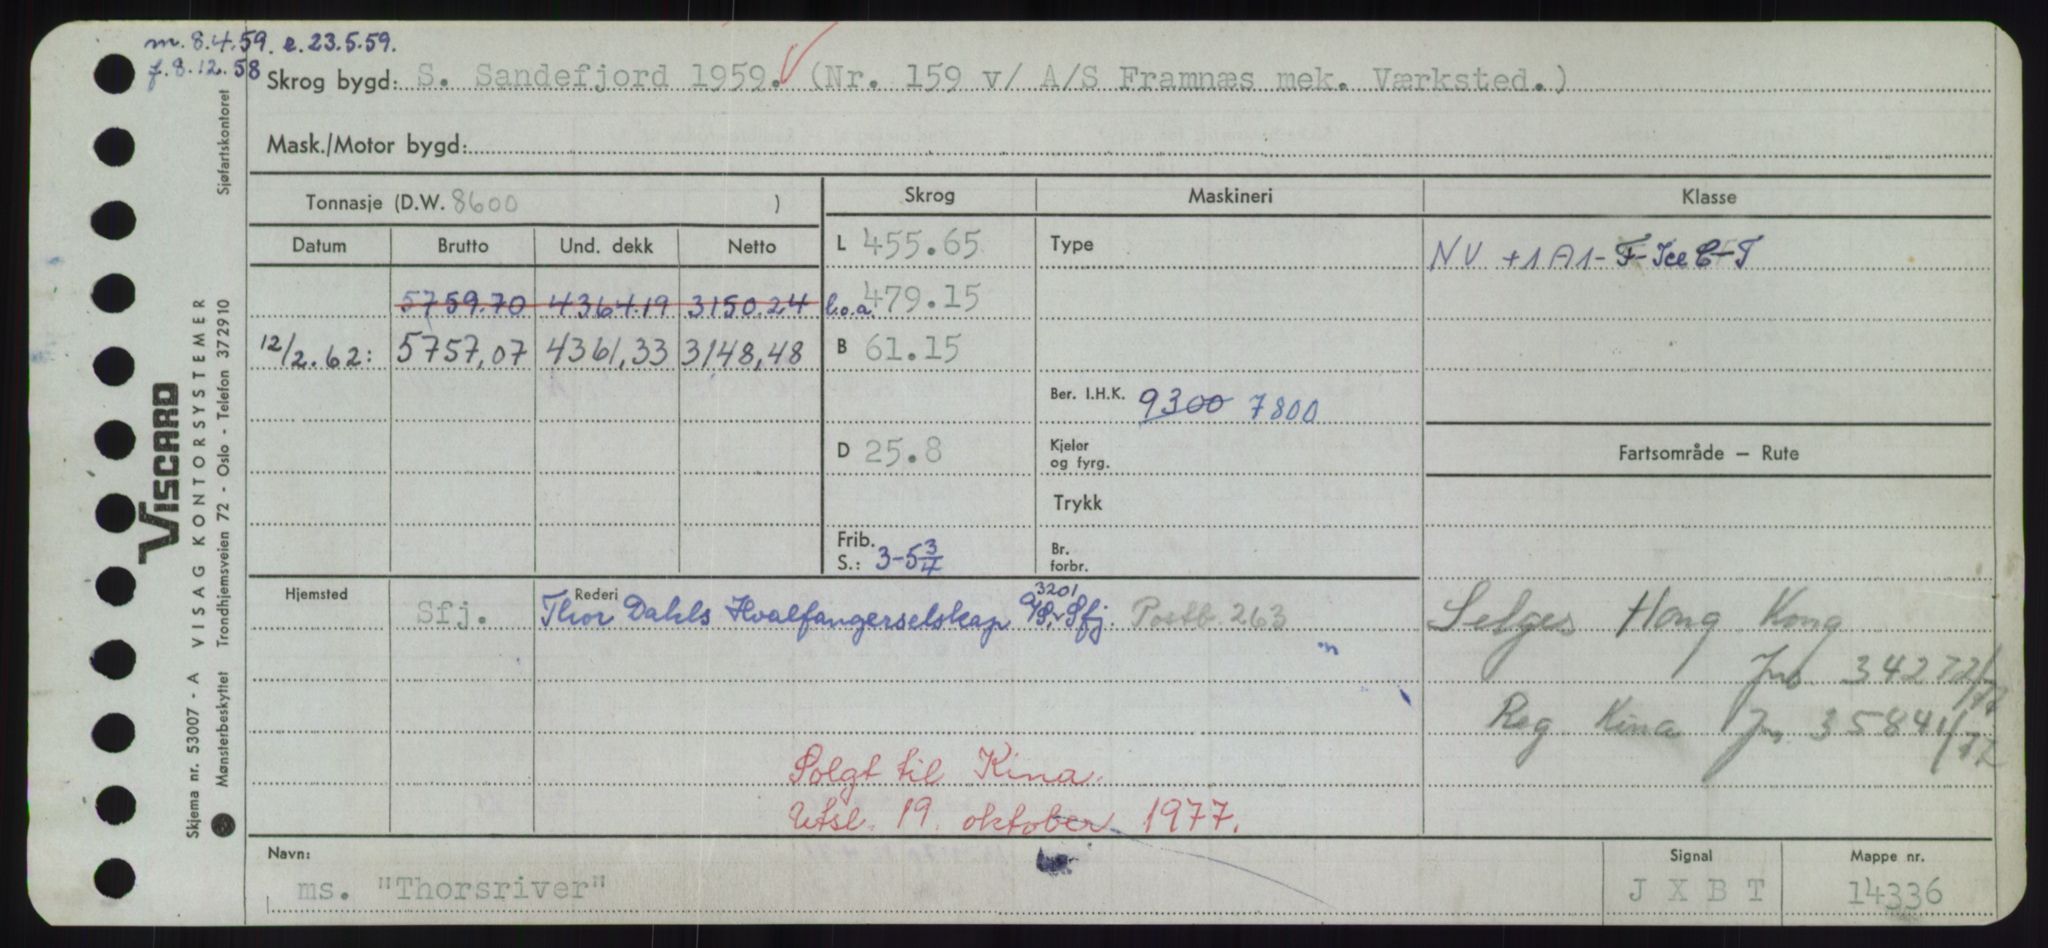 m. 8.4.59. e. 23.5.59.
f. 8.12.58
Skrog bygd: S. Sandefjord 1959. (Nr. 159 v/ A/S Framnæs mek. Værksted.)
Mask./Motor bygd:
Tonnasje (D.W. 8600 ) Skrog Maskineri Klasse
Datum Brutto Und. dekk Netto L 455.65 Type NV +1A1-F-Ice C-T
5759.70 4364.19 3150.24 l.o.a. 479.15
12/2.62: 5757,07 4361,33 3148,48 B 61.15
Ber. I.H.K. 9300 7800
D 25.8 Kjeler og fyrg. Fartsområde — Rute
Trykk
Frib. S.: 3-5 3/4 Br. forbr.
Hjemsted Rederi 3201
Sfj. Thor Dahls Hvalfangerselskap A/S, Sfj. Postb. 263 Selges Hong Kong
Jnr 34272/77
Reg Kina Jnr 35841/77
Solgt til Kina.
Utsl. 19. oktober 1977.
Navn: Signal Mappe nr.
ms. "Thorsriver" J X B T 14336
Sjøfartskontoret
VISCARD
VISAG KONTORSYSTEMER
Trondhjemsveien 72 - Oslo - Telefon 372910
Skjema nr. 53007 - A
Mønsterbeskyttet